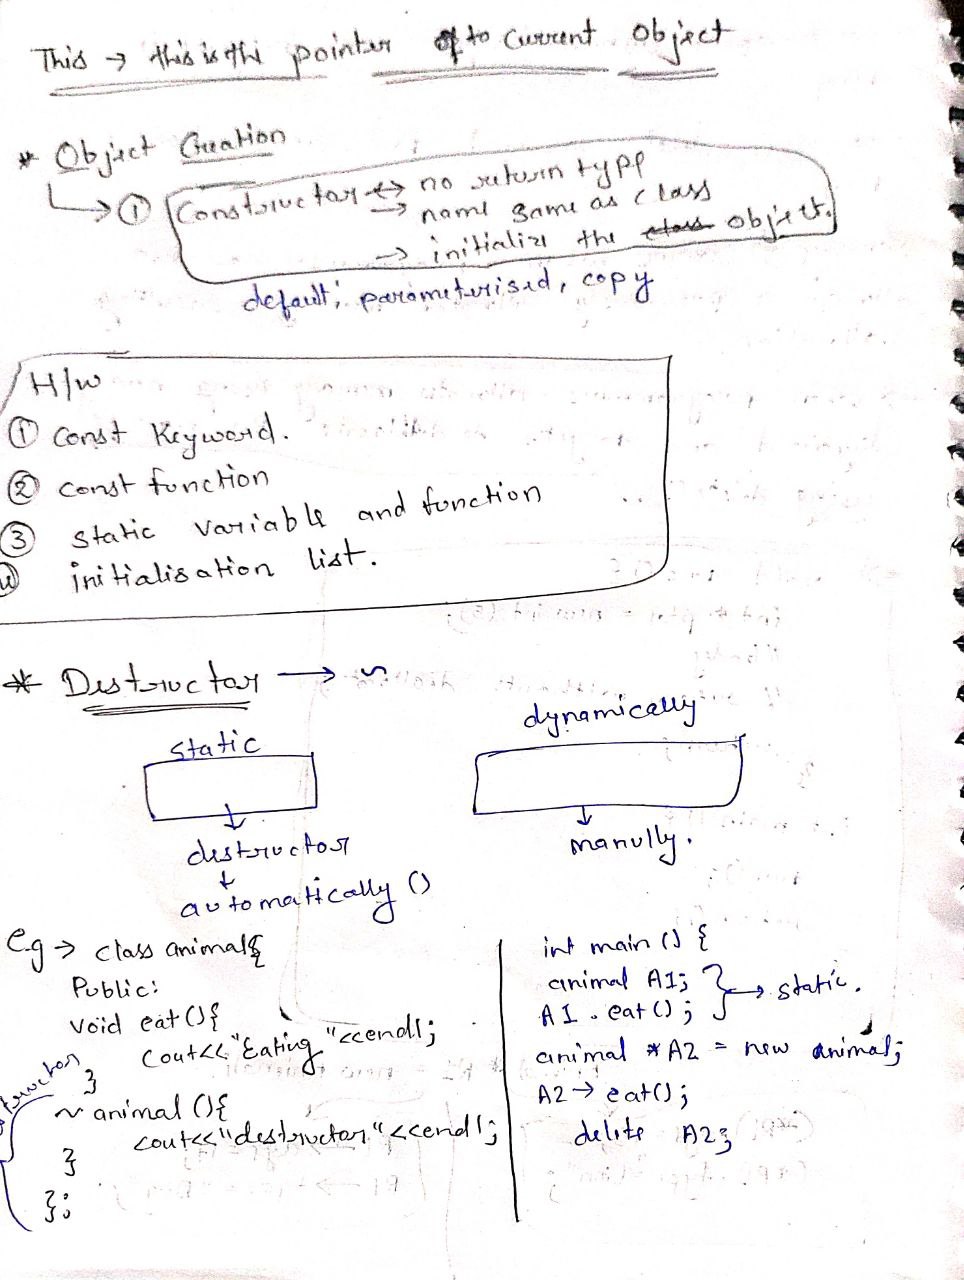 This → this is the pointer to current object
* Object Creation
↳ ① Constructor ↔ no return type
→ name same as class
→ initialize the class object.
default, parameterised, copy
H/w
① Const Keyword.
② const function
③ static variable and function
④ initialisation list.
* Destructor → ~
static
dynamically
destructor
↓
automatically ()
manully.
e.g → class animal{
Public:
void eat(){
cout<<"Eating"<<endl;
}
~animal(){
cout<<"destructor"<<endl;
}
};
int main () {
animal A1; } → static.
A1.eat();
animal *A2 = new animal;
A2→eat();
delite A2;